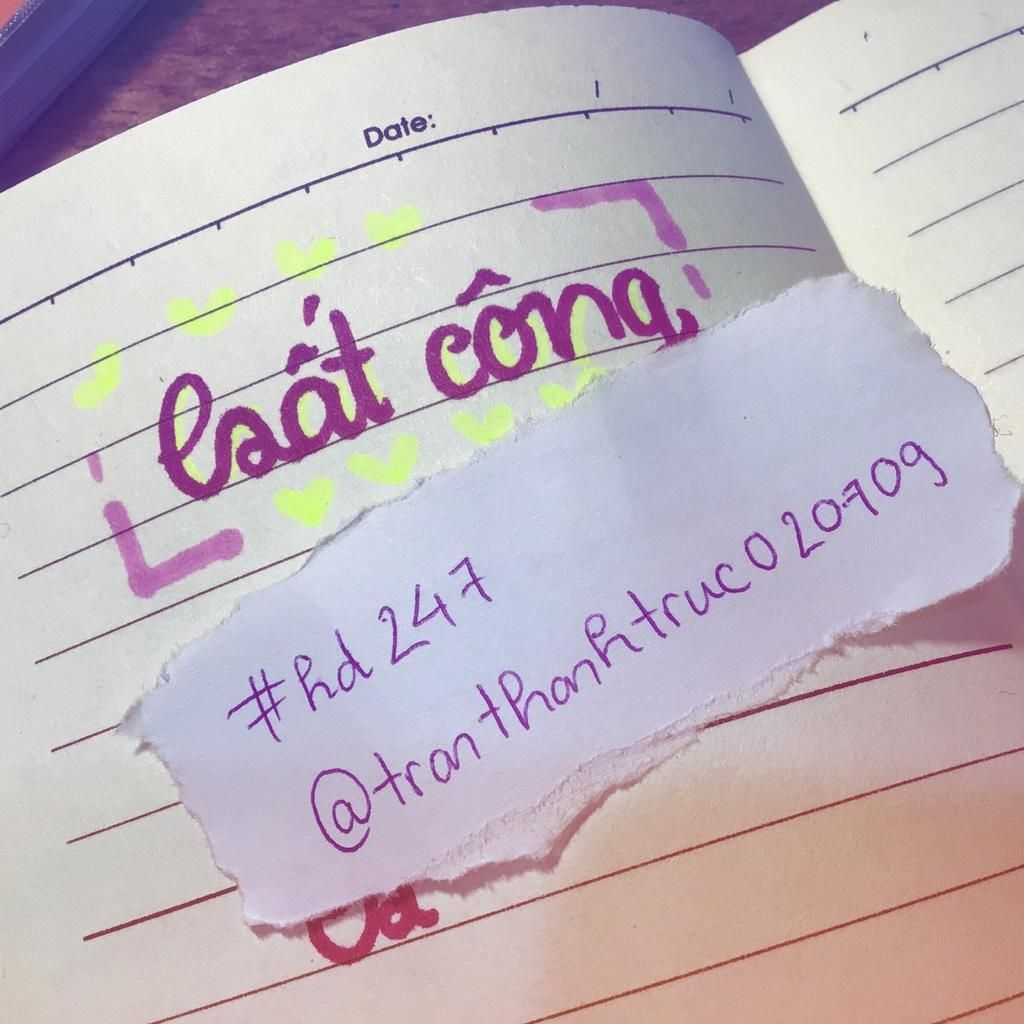 Date: / /
bất công
#hd 247
@tranthanhtruc020709